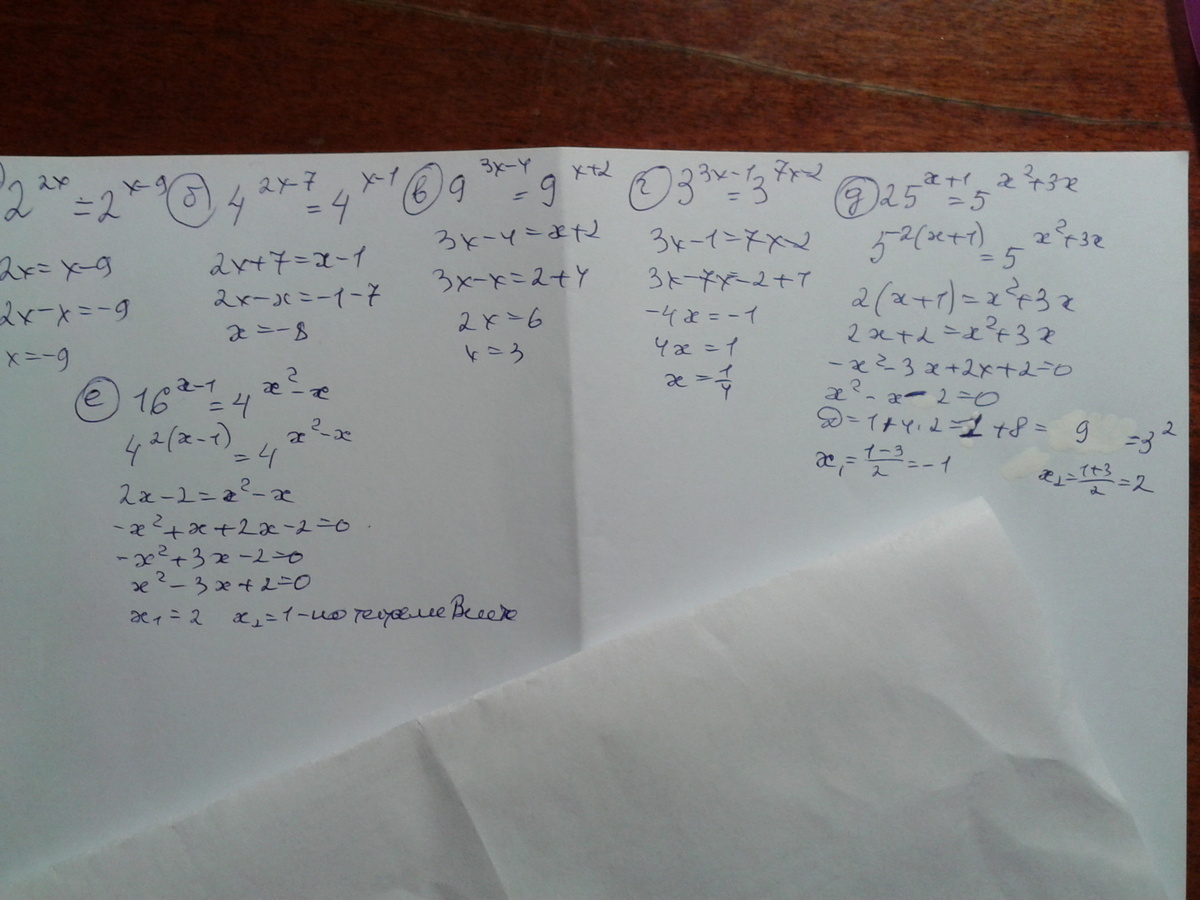 2^{2x} = 2^{x-9}
2x = x-9
2x-x = -9
x = -9
б) 4^{2x-7} = 4^{x-1}
2x+7 = x-1
2x-x = -1-7
x = -8
в) 9^{3x-4} = 9^{x+2}
3x-4 = x+2
3x-x = 2+4
2x = 6
x = 3
г) 3^{3x-1} = 3^{7x-2}
3x-1 = 7x-2
3x-7x = -2+1
-4x = -1
4x = 1
x = 1/4
д) 25^{x+1} = 5^{x^2+3x}
5^{2(x+1)} = 5^{x^2+3x}
2(x+1) = x^2+3x
2x+2 = x^2+3x
-x^2-3x+2x+2=0
x^2-x-2=0
D = 1+4·2 = 1+8 = 9 = 3^2
x_1 = (1-3)/2 = -1 x_2 = (1+3)/2 = 2
е) 16^{x-1} = 4^{x^2-x}
4^{2(x-1)} = 4^{x^2-x}
2x-2 = x^2-x
-x^2+x+2x-2=0
-x^2+3x-2=0
x^2-3x+2=0
x_1 = 2 x_2 = 1 - по теореме Виета